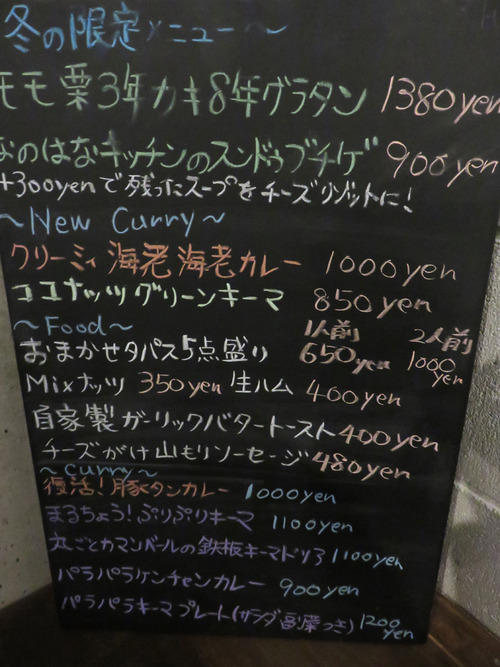 冬の限定メニュー〜
モモ栗3年カキ8年グラタン 1380yen
なのはなキッチンのスンドゥブチゲ 900yen
+300yenで残ったスープをチーズリゾットに!
〜New Curry〜
クリーミィ海老海老カレー 1000yen
ココナッツグリーンキーマ 850yen
〜Food〜 1人前 2人前
おまかせタパス5点盛り 650yen 1000yen
Mixナッツ 350yen 生ハム 400yen
自家製ガーリックバタートースト 400yen
チーズがけ山もりソーセージ 480yen
〜Curry〜
復活!豚タンカレー 1000yen
まるちょう!ぷりぷりキーマ 1100yen
丸ごとカマンベールの鉄板キーマドリア 1100yen
パラパラケンチャンカレー 900yen
パラパラキーマプレート(サラダ副菜つき) 1200yen